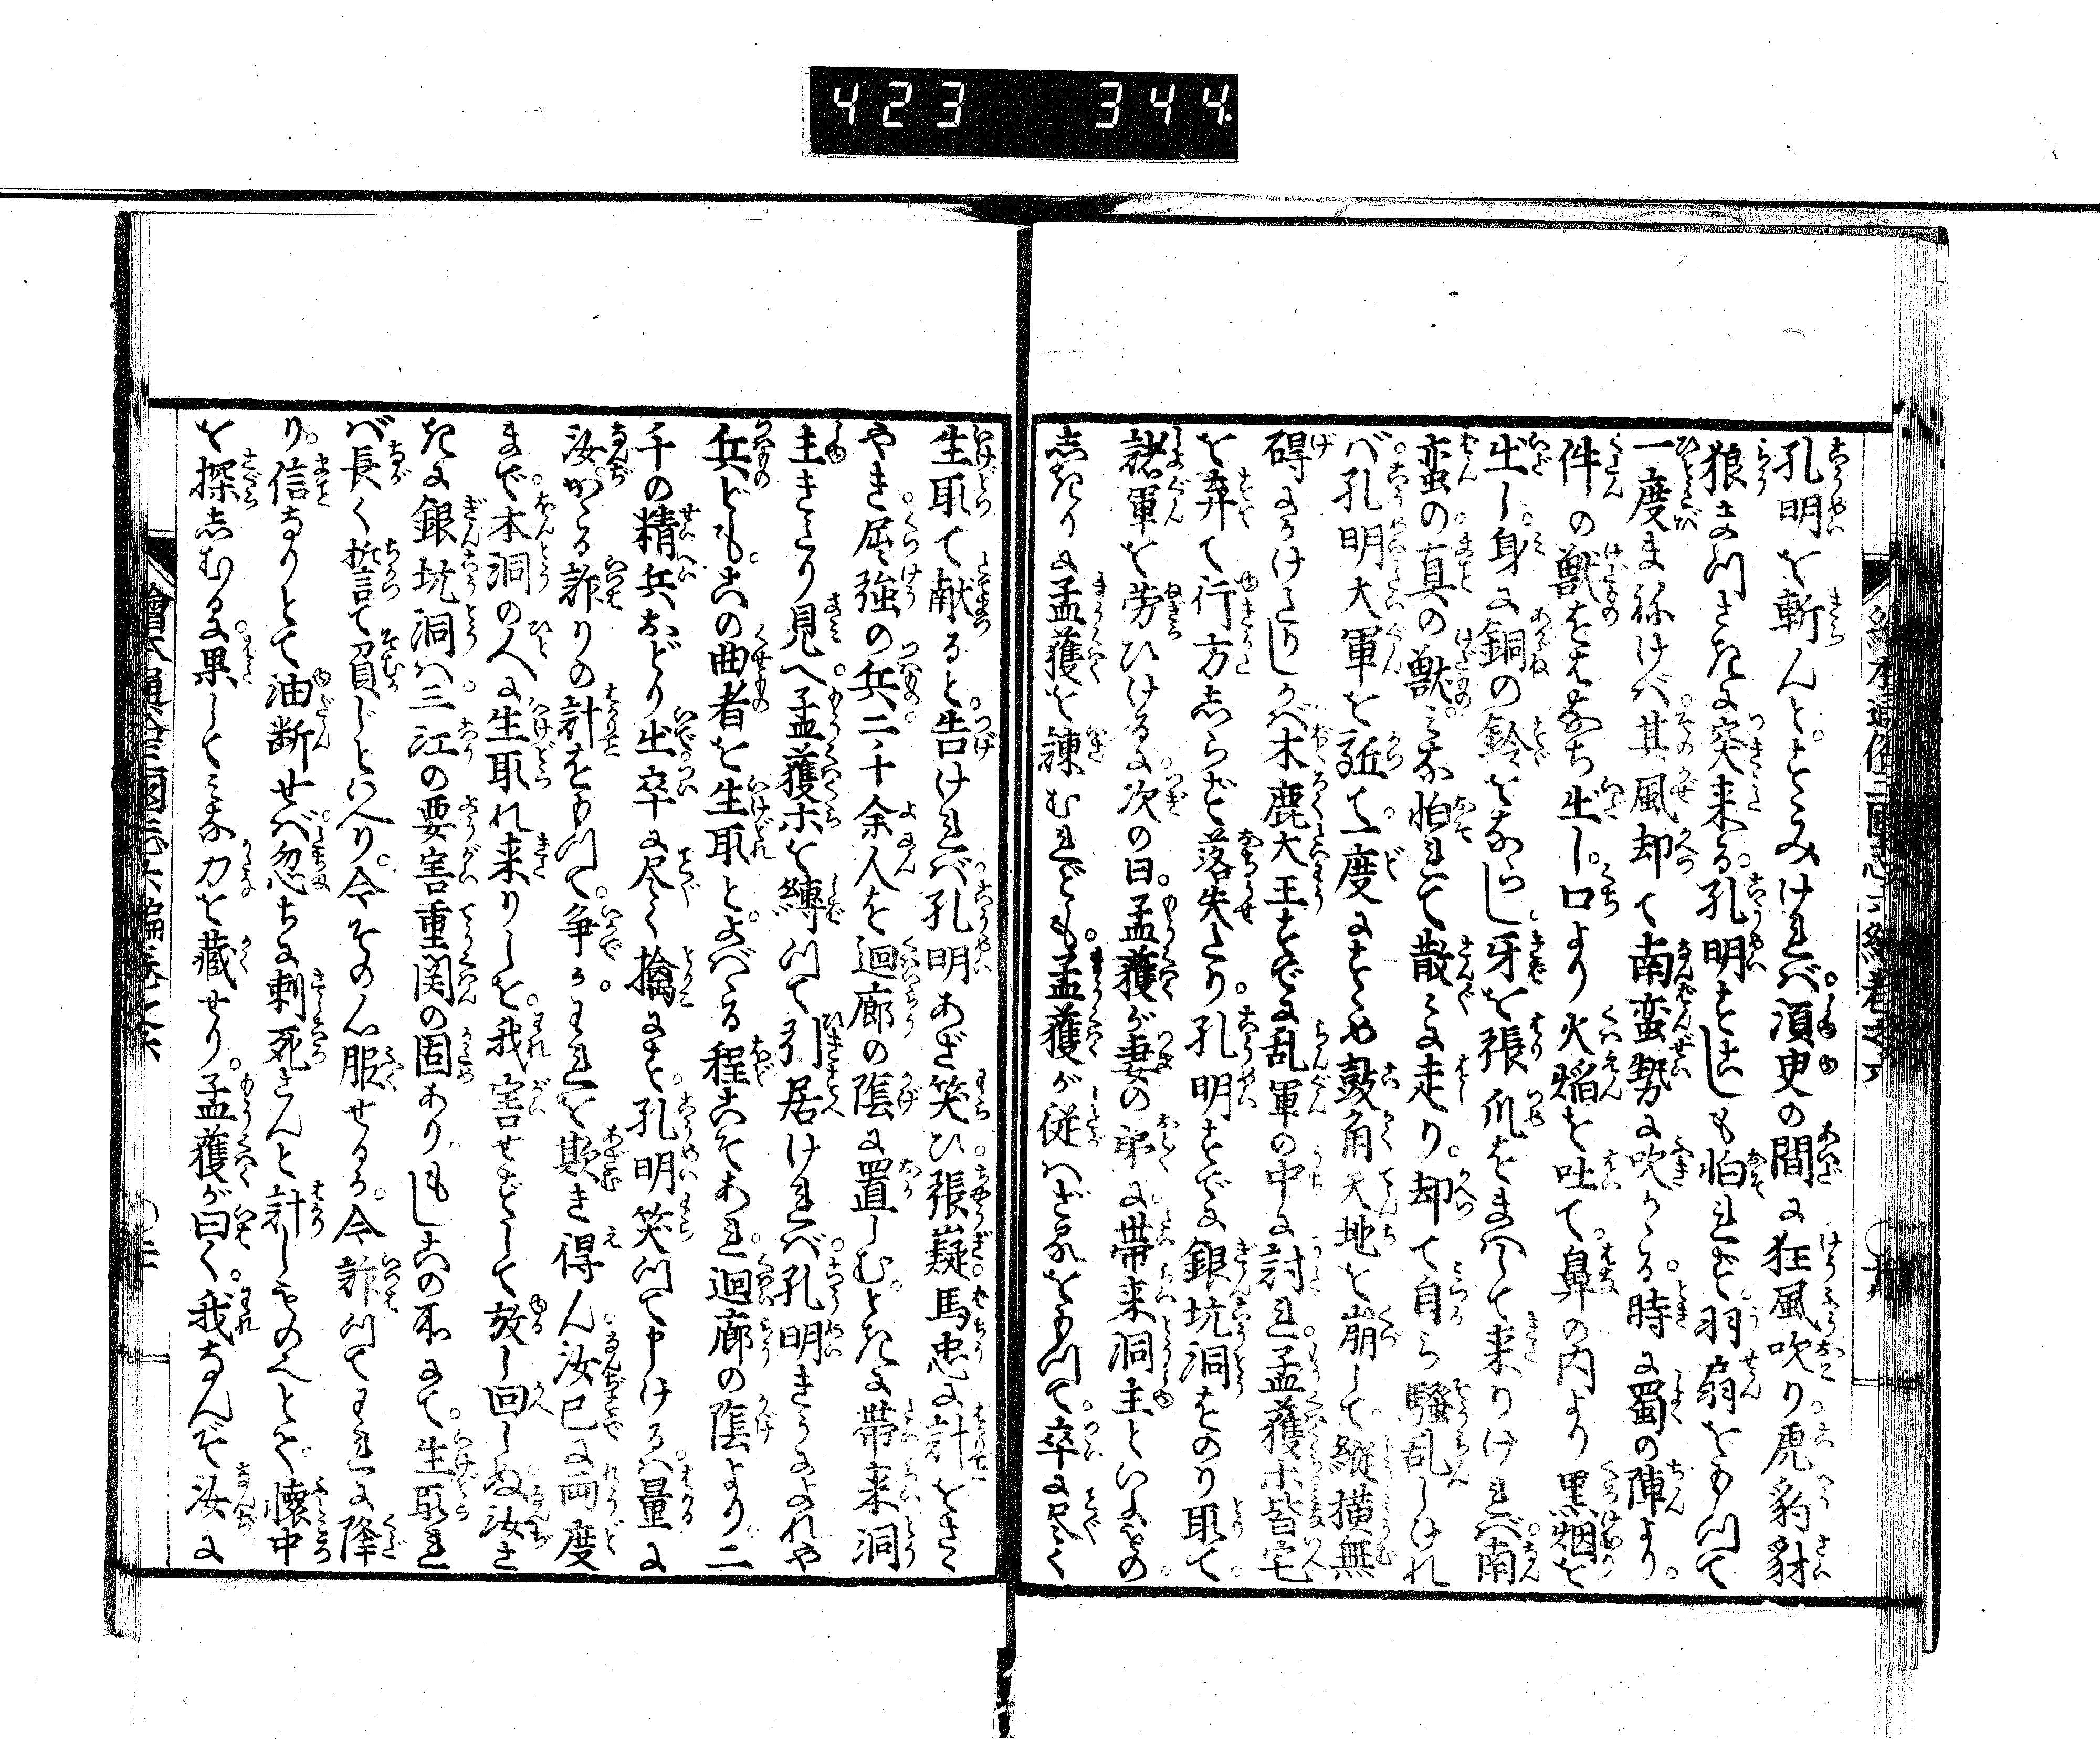 423 344
孔明を斬んとすゝみければ須臾の間に狂風吹り虎豹豺
狼まつさきに突来る孔明すこしも怕れず羽扇をもつて
一度まねけば其風却て南蛮勢に吹かゝる時に蜀の陣より
件の獣をはなち出し口より火焔を吐て鼻の内より黒烟を
出し身に銅の鈴をならし牙を張爪をまへて来りければ南
蛮の真の獣みな怕れて散々に走り却て自ら騒乱しけれ
ば孔明大軍を証て一度にすゝめ鼓角天地を崩して縦横無
碍にかけとりしかば木鹿大王すでに乱軍の中に討れ孟獲等皆宅
を弃て行方しらず落失たり孔明すでに銀坑洞をのり取て
諸軍を労ひけるに次の日孟獲が妻の弟に帯来洞主といふもの
しきりに孟獲を諫むれども孟獲が従はざるをもつて卒に尽く
生取て献ると告ければ孔明あざ笑ひ張嶷馬忠に計をさゝ
やき屈強の兵二千余人を迴廊の陰に置しむときに帯来洞
主きたり見へ孟獲等を縛つて引居ければ孔明きうによれや
兵どもこの曲者を生取とよばゝる程こそあれ迴廊の陰より二
千の精兵おどり出卒に尽く擒にす孔明笑つて申けるは量に
汝かゝる詐りの計をもつて争かわれを欺き得ん汝已に両度
まで本洞の人に生取れ来りしを我害せずして放し回しぬ汝さ
きに銀坑洞は三江の要害重関の固ありもしこの所にて生取れ
ば長く誓て負じといへり今その心服せるか今詐つてわれに降
り信なりとて油断せば忽ちに刺死さんと計しものなりとて懐中
を探しむるに果してみな刀を蔵せり孟獲が曰く我なんぞ汝に